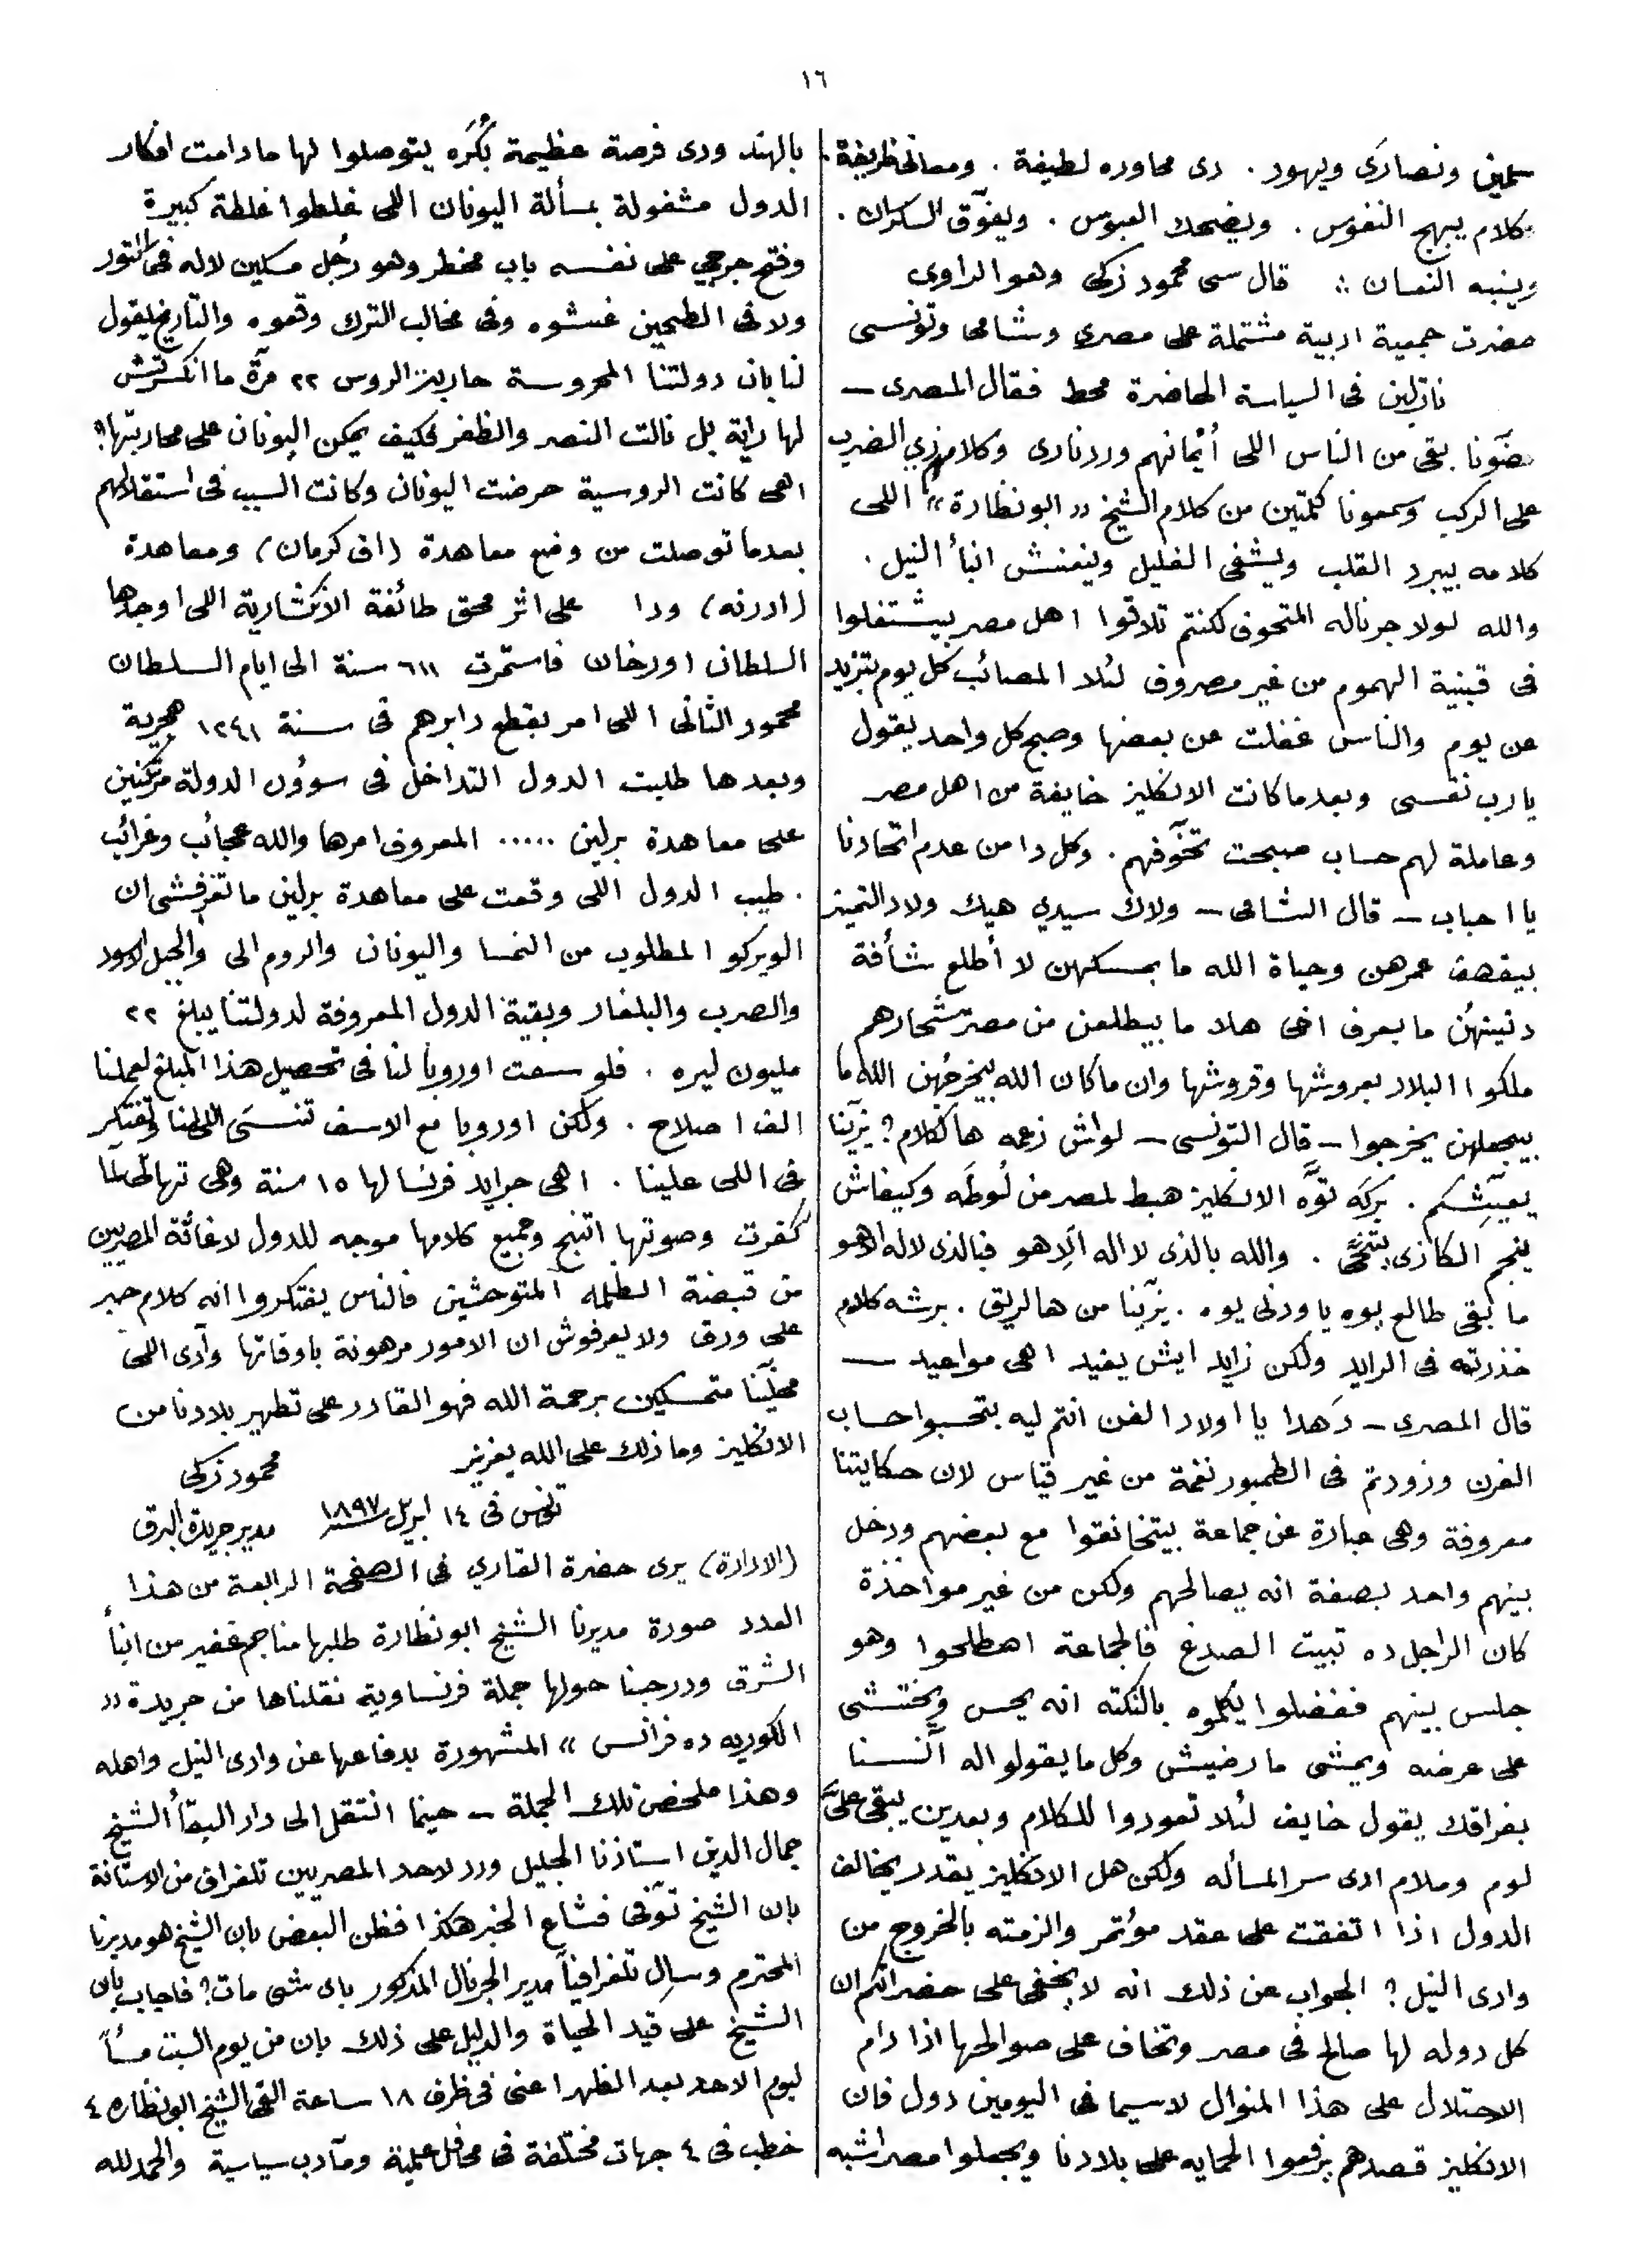 ١٦
سلمين ونصارى ويهود . دى محاوره لطيفة . ومعانى ظريفة .
كلام يبهج النفوس . ويضحك العبوس . ويفوّق السكران .
وينبه النعسان :: قال سى محمود زكى وهو الراوى
حضرت جمعية ادبية مشتملة على مصرى وشامى وتونسى
نازلين فى السياسة الحاضرة محط فقال المصرى —
بقى من الناس اللى أثمانهم وردنارى وكلامهم زي الضرب
على الركب وسمعونا كلمتين من كلام الشيخ « ابو نظارة » اللى
كلامه بيبرد القلب ويشفى الغليل وينعنش ابنأ النيل .
والله لولا جرناله المتحوف لكنتم تلاقوا اهل مصر بيشتغلوا
فى قبنية الهموم من غير مصروف لئلا المصائب كل يوم بتزيد
عن يوم والناس غفلت عن بعضها وصبح كل واحد يقول
يا رب نفسى وبعدما كانت الانكليز خايفة من اهل مصر
وعاملة لهم حساب صبحت تخوّفهم . وكل دا من عدم اتحادنا
يا احباب — قال الشامى — ولاك سيدي هيك ولاد التميز
بيقصف عمرهن وحياة الله ما بمسكهن لا أطلع شأفة
دنيتهن ما بعرف اخى هلا ما بيطلعن من مصر شحارهم
ملكوا البلاد بعروشها وقروشها وان ما كان الله بيخرجهن الله ما
بيجعلهن يخرجوا — قال التونسى — لواش زعمه ها لكلام ؟ يزّينا
يعيّشكم . بركَه توَّه الانكليز هبط لمصر من لُوطَه وكيفاش
ينجم الكاذى يتنحَّى . والله بالذى لا اله الّا هو فبالذى لا له الا هو
ما بقى طالع بوه يا ودنى يوه . يزّينا من ها لريق . برشه كلام
خذرته فى الرايد ولكن زايد ايش يفيد اهى مواعيد —
قال المصرى — دَهدا يا اولاد الفن انتم ليه بتحسبوا حساب
الفرن وزودتم فى الطمبور نغمة من غير قياس لان حكايتنا
معروفة وهى عبارة عن جماعة بيتخانقوا مع بعضهم ودخل
بينهم واحد بصفة انه يصالحهم ولكن من غير مواخذة
كان الراجل ده تبيت الصدغ فالجماعة اصطلحوا وهو
جلس بينهم ففضلوا يكلموه بالنكته انه يحس ويختشى
على عرضه ويمشى ما رضيش وكل ما يقولوا له آنسنا
بفراقك يقول خايف لئلا تعودوا للكلام وبعدين يبقى علىَّ
لوم وملام ادى سر المسأله ولكن هل الانكليز يقدر يخالف
الدول اذا اتفقت على عقد مؤتمر والزمته بالخروج من
وادى النيل ؟ الجواب عن ذلك انه لا يخفى على حضراتكم ان
كل دوله لها صالح فى مصر وتخاف على صوالحها اذا دام
الاحتلال على هذا المنوال لاسيما فى اليومين دول فان
الانكليز قصدهم يرفعوا الحمايه على بلادنا ويجعلوا مصر اشبه
بالهند ودى فرصة عظيمة بُكْرَه يتوصلوا لها ما دامت افكار
الدول مشغولة بمسألة اليونان اللى غلطوا غلطة كبيرة
وفتح جرجي على نفسه باب مخطر وهو رجُل مسكين لا له فى التور
ولا فى الطحين غشوه وفى مخالب الترك وقعوه والتاريخ يقول
لنا بان دولتنا المحروسة حاربت الروس ٢٢ مرّة ما انكسرتش
لها راية بل نالت النصر والظفر فكيف يمكن اليونان على محاربتها ؟
اهى كانت الروسية حرضت اليونان وكانت السبب فى استقلالهم
بعدما توصلت من وضع معاهدة (اق كرمان) ومعاهدة
(ادرنه) ودا على اثر محق طائفة الانكشارية اللى اوجدها
السلطان اورخان فاستمرت ٦١١ سنة الى ايام السلطان
محمود الثانى اللى امر بقطع دابرهم فى سنة ١٢٤١ هجرية
وبعدها طلبت الدول التداخل فى سوؤن الدولة مرتكنين
على معاهدة برلين ..... المعروف امرها والله عجائب وغرائب
. طيب الدول اللى وقعت على معاهدة برلين ما تعرفشى ان
الويركو المطلوب من النمسا واليونان والروم الى والجبل الاسود
والصرب والبلغار وبقية الدول المعروفة لدولتنا يبلغ ٢٢
مليون ليره . فلو سعت اوروبا لنا فى تحصيل هذا المبلغ لعملنا
الف اصلاح . ولكن اوروبا مع الاسف تنسَى اللى لنا وتفتكر
فى اللى علينا . اهى جرايد فرنسا لها ١٥ سنة وهى تهاتى لمّا
كفرت وصوتها اتنبح وجميع كلامها موجه للدول لاغاثة المصريين
من قبضة الظلمه المتوحشين فالناس يفتكروا انه كلام حبر
على ورق ولا يعرفوش ان الامور مرهونة باوقاتها وآدى اللى
مخلّينا متمسكين برحمة الله فهو القادر على تطهير بلادنا من
الانكليز وما ذلك على الله بعزيز
محمود زكى
تونس فى ١٤ ابريل سنة ١٨٩٧ مدير جريدة البرق
(الادارة) يرى حضرة القاري فى الصفحة الرابعة من هذا
العدد صورة مديرنا الشيخ ابو نظارة طلبها منا جم غفير من ابنأ
الشرق ودرجنا حولها جملة فرنساوية نقلناها من جريدة «
الكوريه ده فرانس » المشهورة بدفاعها عن وادى النيل واهله
وهذا ملخص تلك الجملة — حينما انتقل الى دار البقأ الشيخ
جمال الدين استاذنا الجليل ورد لاحد المصريين تلغراف من الاستانة
بان الشيخ توّفى فشاع الخبر هكذا فظن البعض بان الشيخ هو مديرنا
المحترم وسال تلغرافياً مدير الجرنال المذكور باى شى مات ؟ فاجاب بان
الشيخ على قيد الحياة والدليل على ذلك بان من يوم السبت مسأً
ليوم الاحد بعد الظهر اعنى فى ظرف ١٨ ساعة القى الشيخ ابو نظاره ٤
خطب فى ٤ جهات مختلفة فى محافل علمية ومآدب سياسية والحمد لله